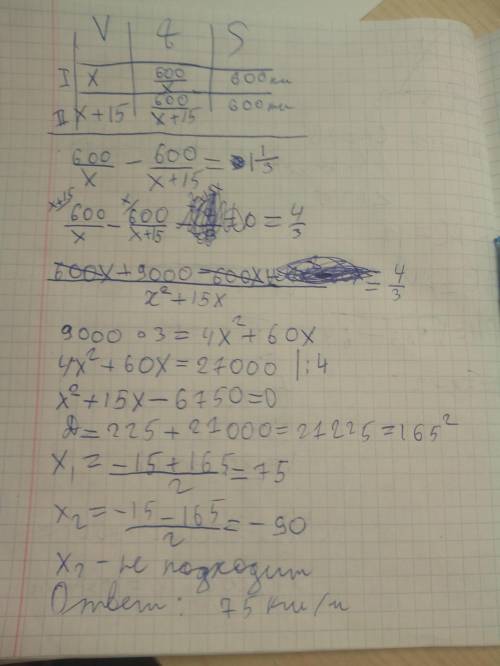 V t S
I x 600/x 600км
II x+15 600/x+15 600км
600/x − 600/x+15 = 1 1/3
x+15/ 600/x − x/ 600/x+15 = 4/3
600x+9000−600x / x²+15x = 4/3
9000 · 3 = 4x²+60x
4x²+60x=27000 |:4
x²+15x−6750=0
D=225+27000=27225=165²
x₁ = −15+165/2 = 75
x₂ = −15−165/2 = −90
x₂ − не подходит
Ответ: 75 км/ч